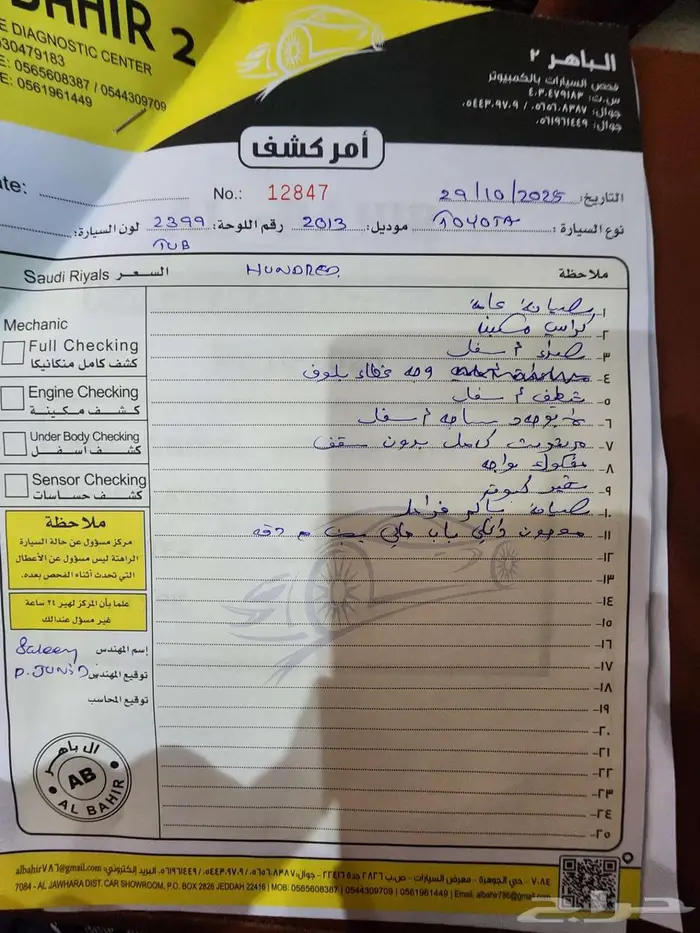 BAHIR 2
E DIAGNOSTIC CENTER
030479183
E: 0565608387 / 0544309709
E: 0561961449
الباهر ٢
فحص السيارات بالكمبيوتر
س.ت: ٤٠٣٠٤٧٩١٨٣
جوال: ٠٥٦٥٦٠٨٣٨٧ / ٠٥٤٤٣٠٩٧٠٩
جوال: ٠٥٦١٩٦١٤٤٩
أمر كشف
ate: No.: 12847 29/10/2025 التاريخ:
نوع السيارة: TOYOTA موديل: 2013 رقم اللوحة: 2399 لون السيارة:
TUB
Saudi Riyals السعر HUNDRED ملاحظة
Mechanic
Full Checking
كشف كامل منكانيكا
Engine Checking
كشف مكينة
Under Body Checking
كشف اسفل
Sensor Checking
كشف حساسات
١- صيانة عامة
٢- كراسي مكينة
٣- صداء أسفل
٤- وجه غطاء بلوف
٥- شطف أسفل
٦- لا يوجد ساجه أسفل
٧- مرشوش كامل بدون سقف
٨- مفكوك واجه
٩- تغير كبوت
١٠- صيانة سلندر فرامل
١١- معجون داخلي باب خلفي يمين مع دقه
١٢-
١٣-
١٤-
١٥-
١٦-
١٧-
١٨-
١٩-
٢٠-
٢١-
٢٢-
٢٣-
٢٤-
٢٥-
ملاحظة
مركز مسؤول عن حالة السيارة
الراهنة ليس مسؤول عن الأعطال
التي تحدث أثناء الفحص بعده.
علما بأن المركز لهير ٢٤ ساعة
غير مسؤل عندالك
إسم المهندس Saleem
توقيع المهندس P. JUNID
توقيع المحاسب
ال باهر
AB
AL BAHIR
٧٠٨٤ - حي الجوهرة - معرض السيارات - ص.ب ٢٨٢٦ جدة ٢٢٤١٦ - جوال: ٠٥٦٥٦٠٨٣٨٧ / ٠٥٤٤٣٠٩٧٠٩ / ٠٥٦١٩٦١٤٤٩ البريد إلكتروني: albahir786@gmail.com
7084 - AL JAWHARA DIST. CAR SHOWROOM, P.O. BOX 2826 JEDDAH 22416 | MOB: 0565608387 | 0544309709 | 0561961449 | Email: albahir786@gmail.com
حراج